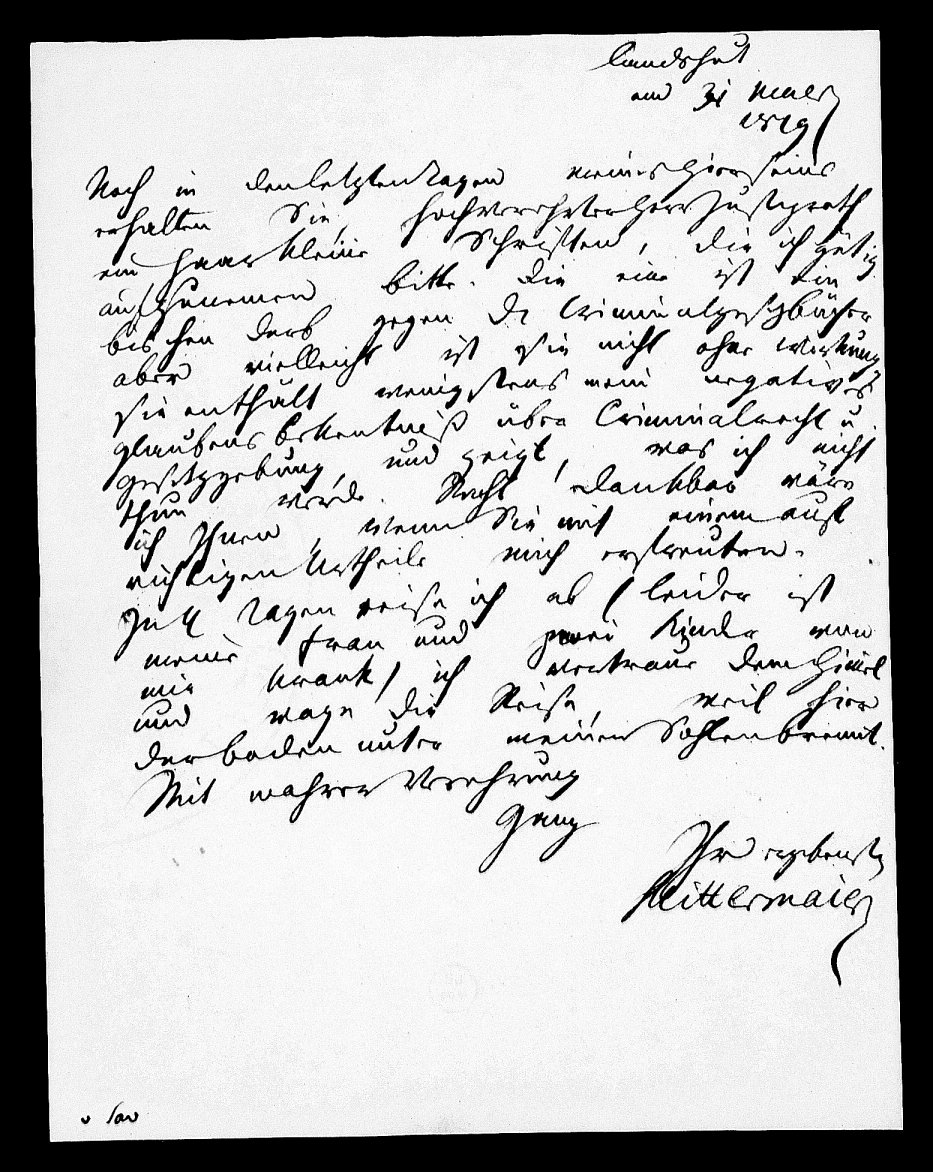 Landshut
am 31 Maerz
1819
Noch in den letzten Tagen meines Hierseins
erhalten Sie, Hochverehrter Herr Justizrath
ein Paar kleine Schriften, die ich gütig
aufzunemen bitte. Die eine ist ein
bischen derb gegen die Criminalgesetzbücher
aber vielleicht ist sie nicht ohne Wirkung
sie enthält wenigstens mein negatives
Glaubensbekentniß über Criminalrecht u.
Gesetzgebung, und zeigt, was ich nicht
thun werde. Recht dankbar wäre
ich Ihnen, wenn Sie mit einem auf
richtigen Urtheile mich erfreuten.
In 4 Tagen reise ich ab (leider ist
meine Frau und zwei Kinder von
mir krank) ich vertraue dem Himel
und wage die Reise, weil hier
der Boden unter meinen Sohlen brennt.
Mit wahrer Verehrung
Ganz
Ihr ergebenster
Mittermaier